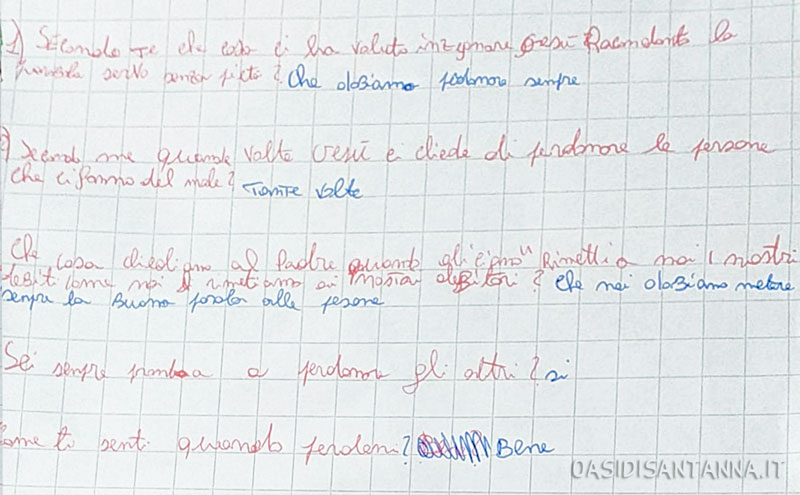 1) Secondo te che cosa ci ha voluto insegnare Gesù Raccontando la
parabola servo senza pietà? Che dobiamo perdonare sempre
) Secondo me quande volte Gesù e chiede di perdonare le persone
che ci fanno del male? Tante volte
Che cosa chiediamo al Padre quando gli diciamo "Rimetti a noi i nostri
debiti come noi li rimettiamo ai nostri debitori? Che noi dobiamo metere
sempre la Buona parola alle persone
Sei sempre pronta a perdonare gli altri? si
ome ti senti quando perdoni? Bene
OASIDISANTANNA.IT